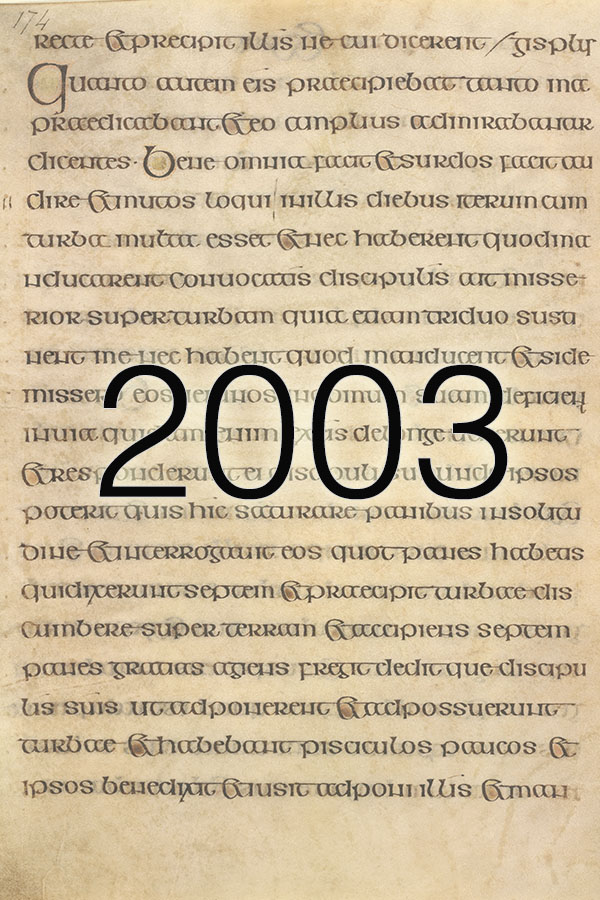 174
recte & precipit illis ne cui dicerent / gis plus
Quanto autem eis praecipiebat tanto ma
praedicabant & eo amplius admirabantur
dicentes· Bene omnia facit & surdos facit au
dire & mutos loqui in illis diebus iterum cum
turba multa esset & nec haberent quod ma
nducarent conuocatis discipulis ait misse
rior super turbam quia etiam triduo susti
nent me nec habent quod manducent & side
missero eos ieiunos in domum suam deficien
in uia quidam enim ex eis de longe uenerunt
2003
& responderunt ei discipuli sui unde ipsos
poterit quis hic saturare panibus in solitu
dine & interrogauit eos quot panes habetis
qui dixerunt septem & praecipit turbae dis
cumbere super terram & accipiens septem
panes gratias agens fregit dedit que discipu
lis suis ut adponerent & adpossuerunt
turbae & habebant pisciculos paucos &
ipsos benedixit & iusit adponi illis & man